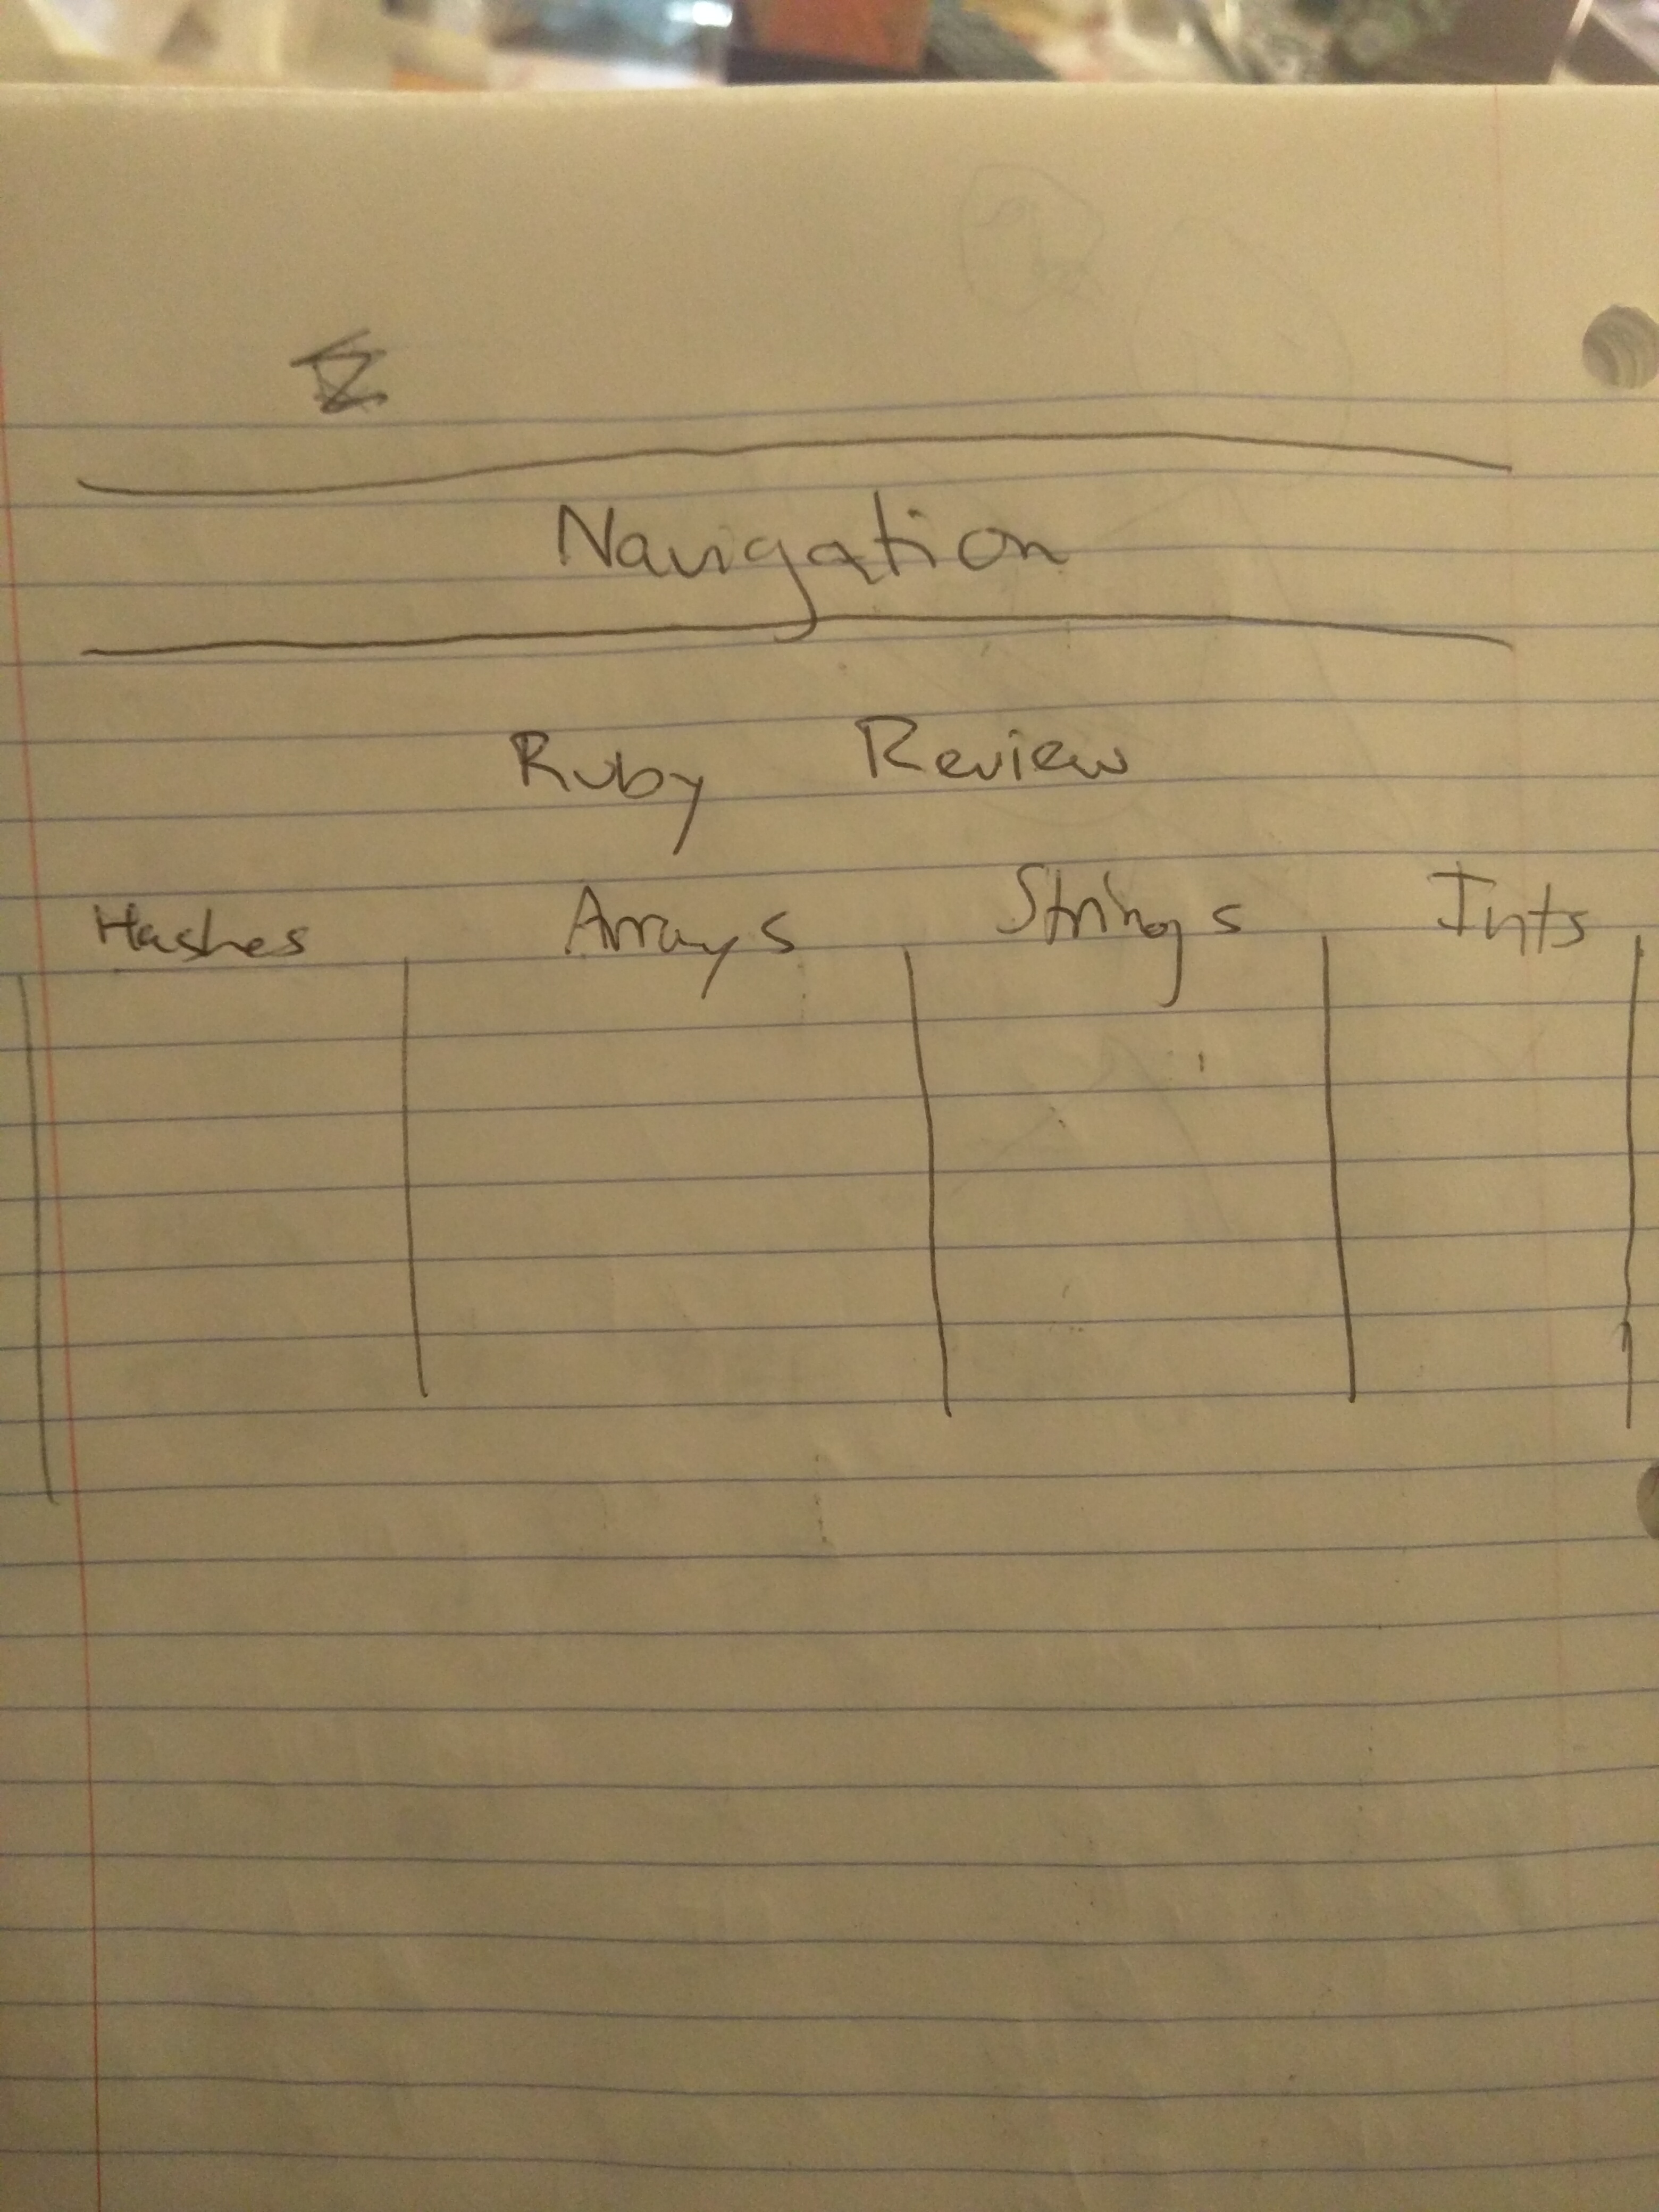 Navigation
Ruby Review
Hashes Arrays Strings Ints